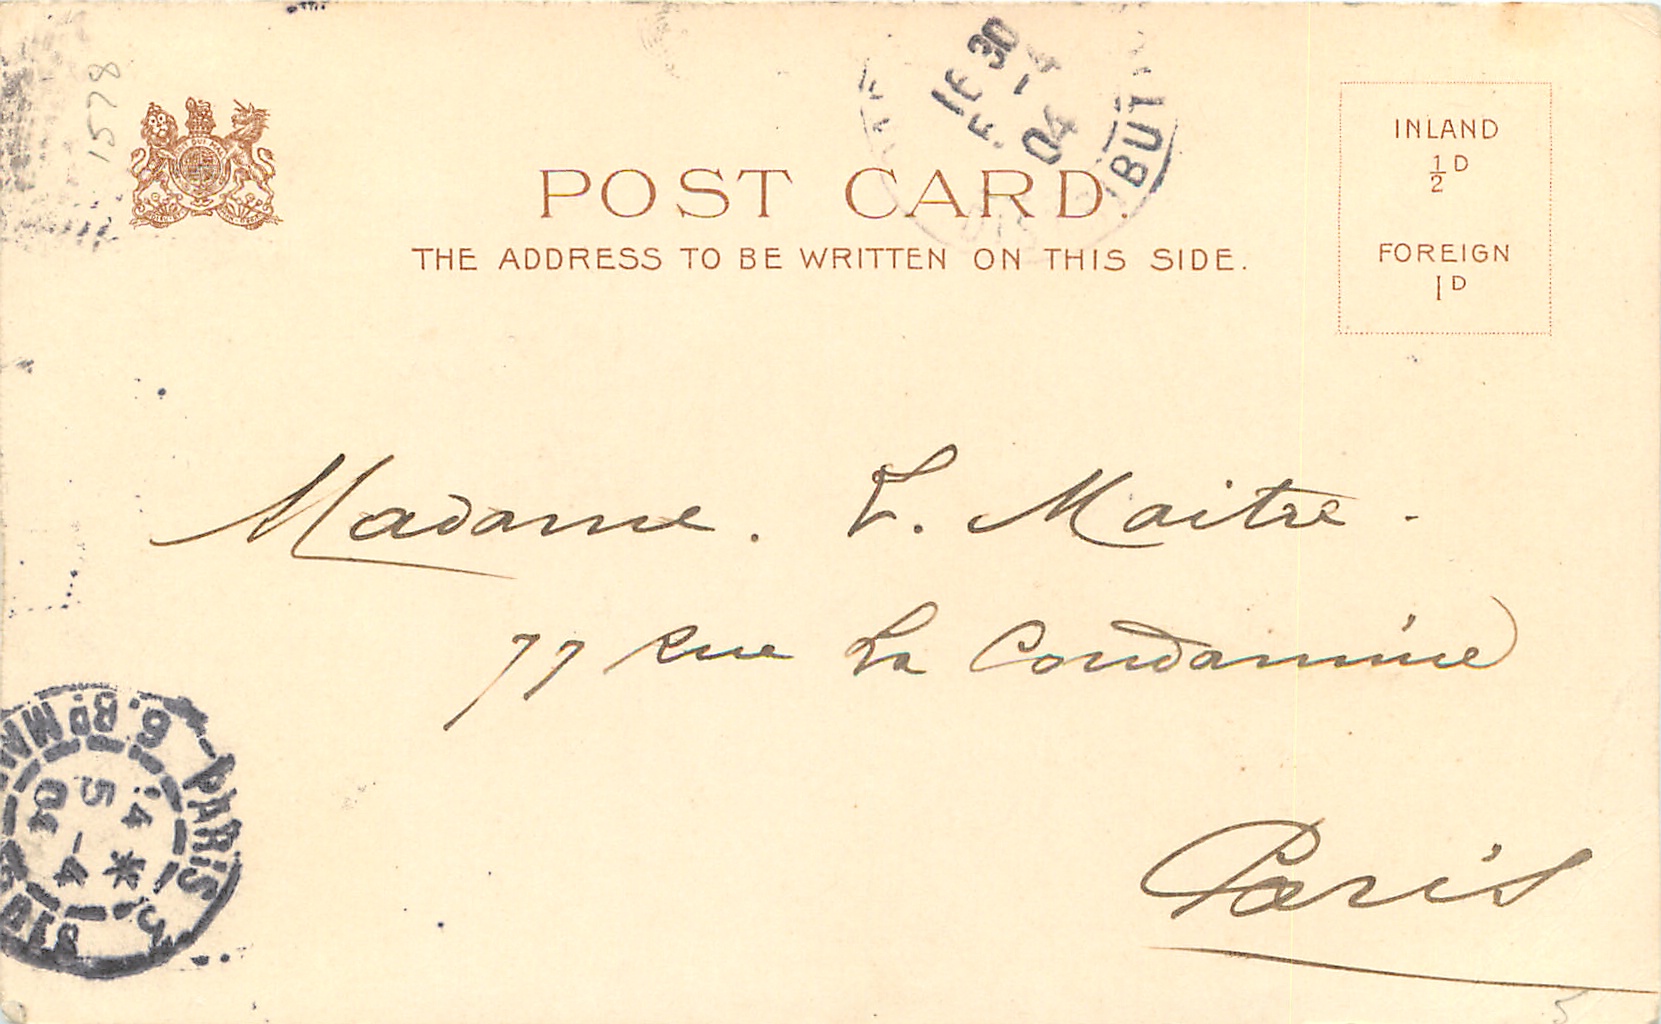 1578
POST CARD.
THE ADDRESS TO BE WRITTEN ON THIS SIDE.
INLAND
½D
FOREIGN
1D
1E 30
-4
04
IBUT
Madame. L. Maitre.
77 Rue La Condamine
Paris
PARIS
6. BD MAL
5 -4
04
5